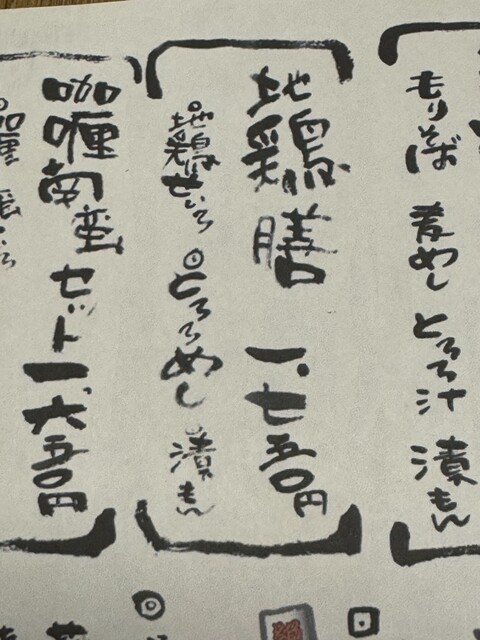 もりそば 麦めし とろろ汁 漬もん
地鶏膳 一、七五〇円
◎地鶏せいろ ◎とろろめし 漬もん
咖喱南蛮セット 一、六五〇円